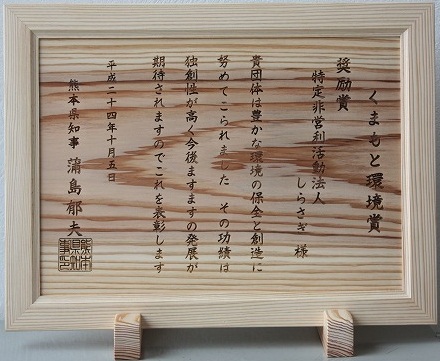 くまもと環境賞
奨励賞
特定非営利活動法人
しらさぎ 様
貴団体は豊かな環境の保全と創造に
努めてこられました その功績は
独創性が高く今後ますますの発展が
期待されますのでこれを表彰します
平成二十四年十月五日
熊本県知事 蒲島郁夫
熊本県知事之印